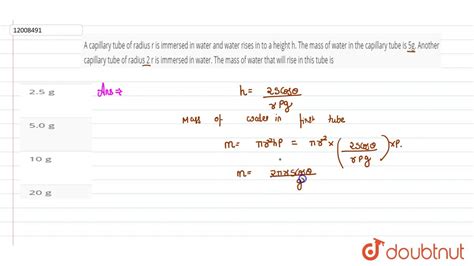 12008491
A capillary tube of radius r is immersed in water and water rises in to a height h. The mass of water in the capillary tube is 5g. Another
capillary tube of radius 2 r is immersed in water. The mass of water that will rise in this tube is
2.5 g
5.0 g
10 g
20 g
Ans →
h = 2scosθ / rρg
Mass of water in first tube
m = πr²hρ = πr² × (2scosθ / rρg) × ρ.
m = 2πrscosθ / g
doubtnut